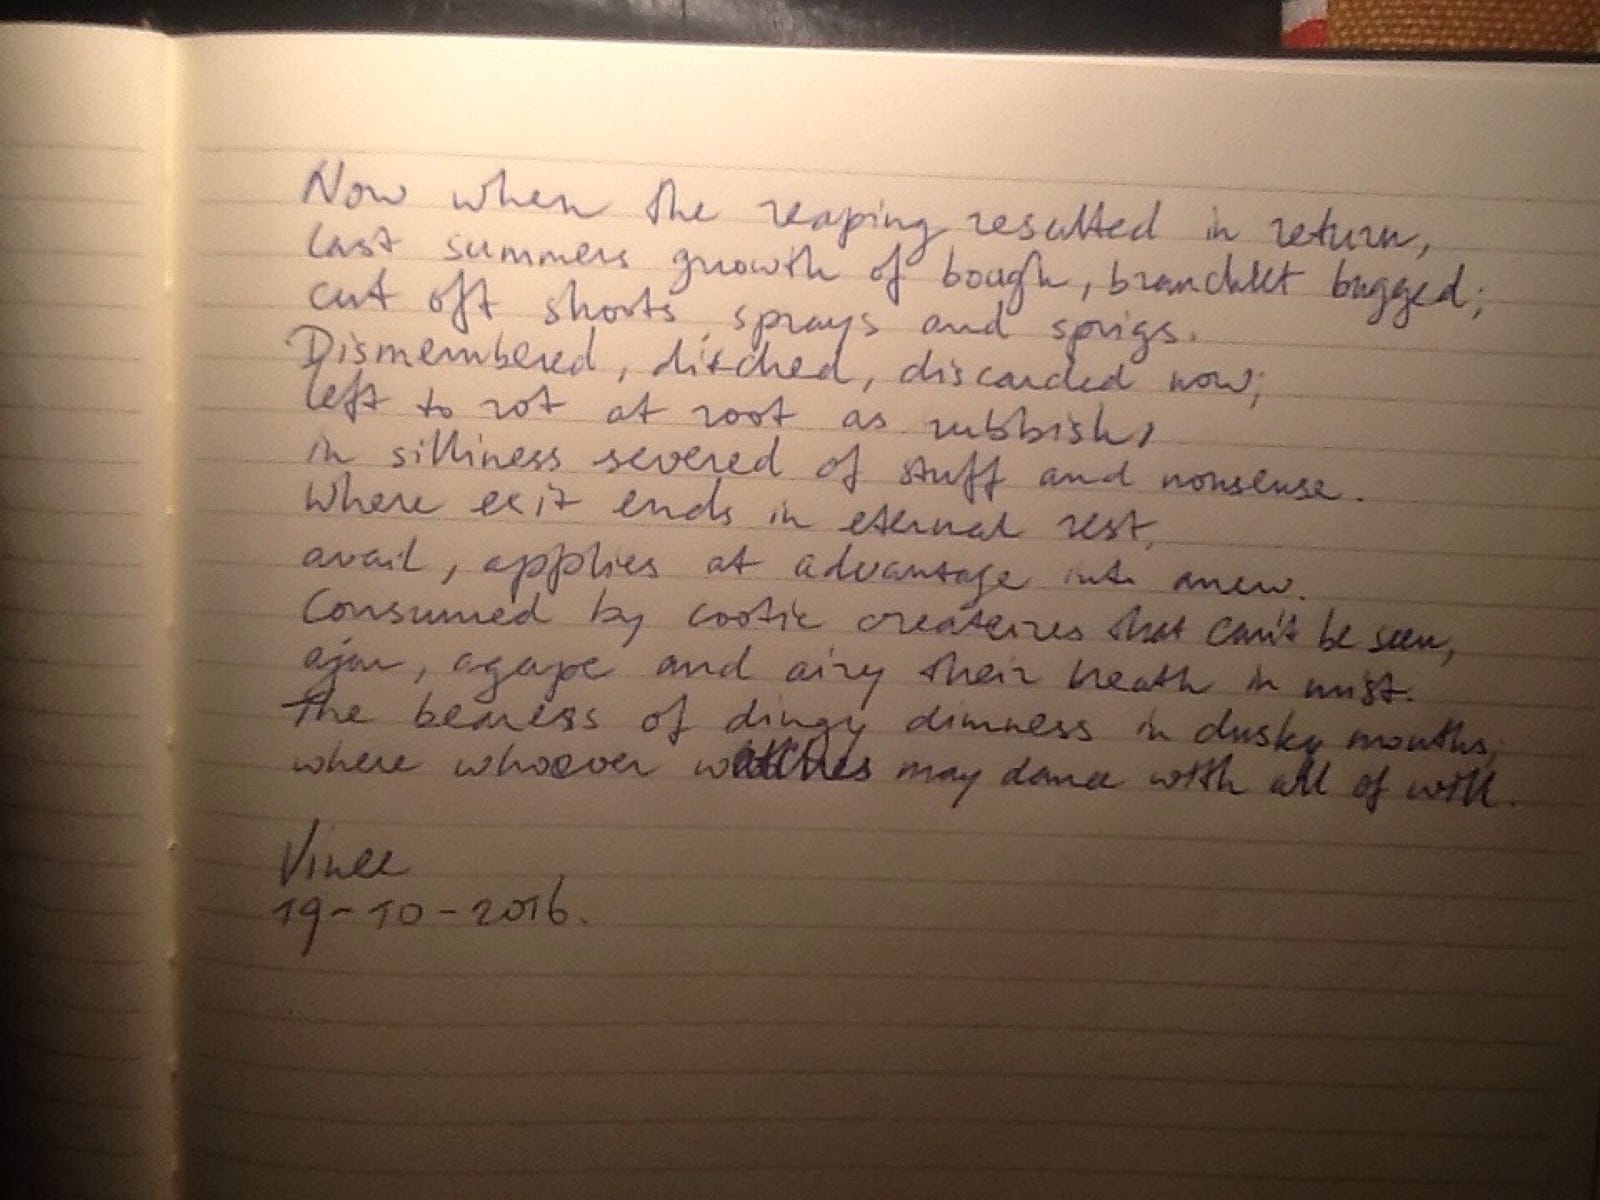 Now when the reaping resulted in return,
last summers growth of bough, branchlet bagged;
cut oft shoots, sprays and sprigs.
Dismembered, ditched, discarded now;
left to rot at root as rubbish,
in silliness severed of stuff and nonsense.
Where exit ends in eternal rest,
avail, applies at advantage into anew.
Consumed by cootie creatures that can't be seen,
ajar, agape and airy their breath in mist.
The of dingy dimness in dusky months,
where whoever watches may dance with all of will.
Vince
19-10-2016.